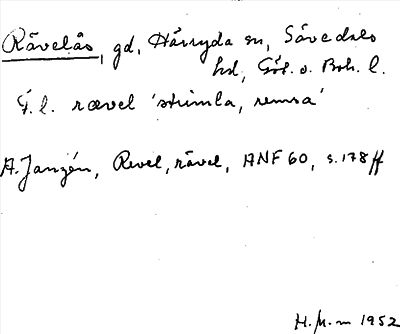 Rävelås, gd, Härryda sn, Sävedals
hd, Göt. o. Boh. l.
F. l. rævel 'strimla, remsa'
A. Janzén, Revel, rävel, ANF 60, s. 178 ff
H. M-m 1952